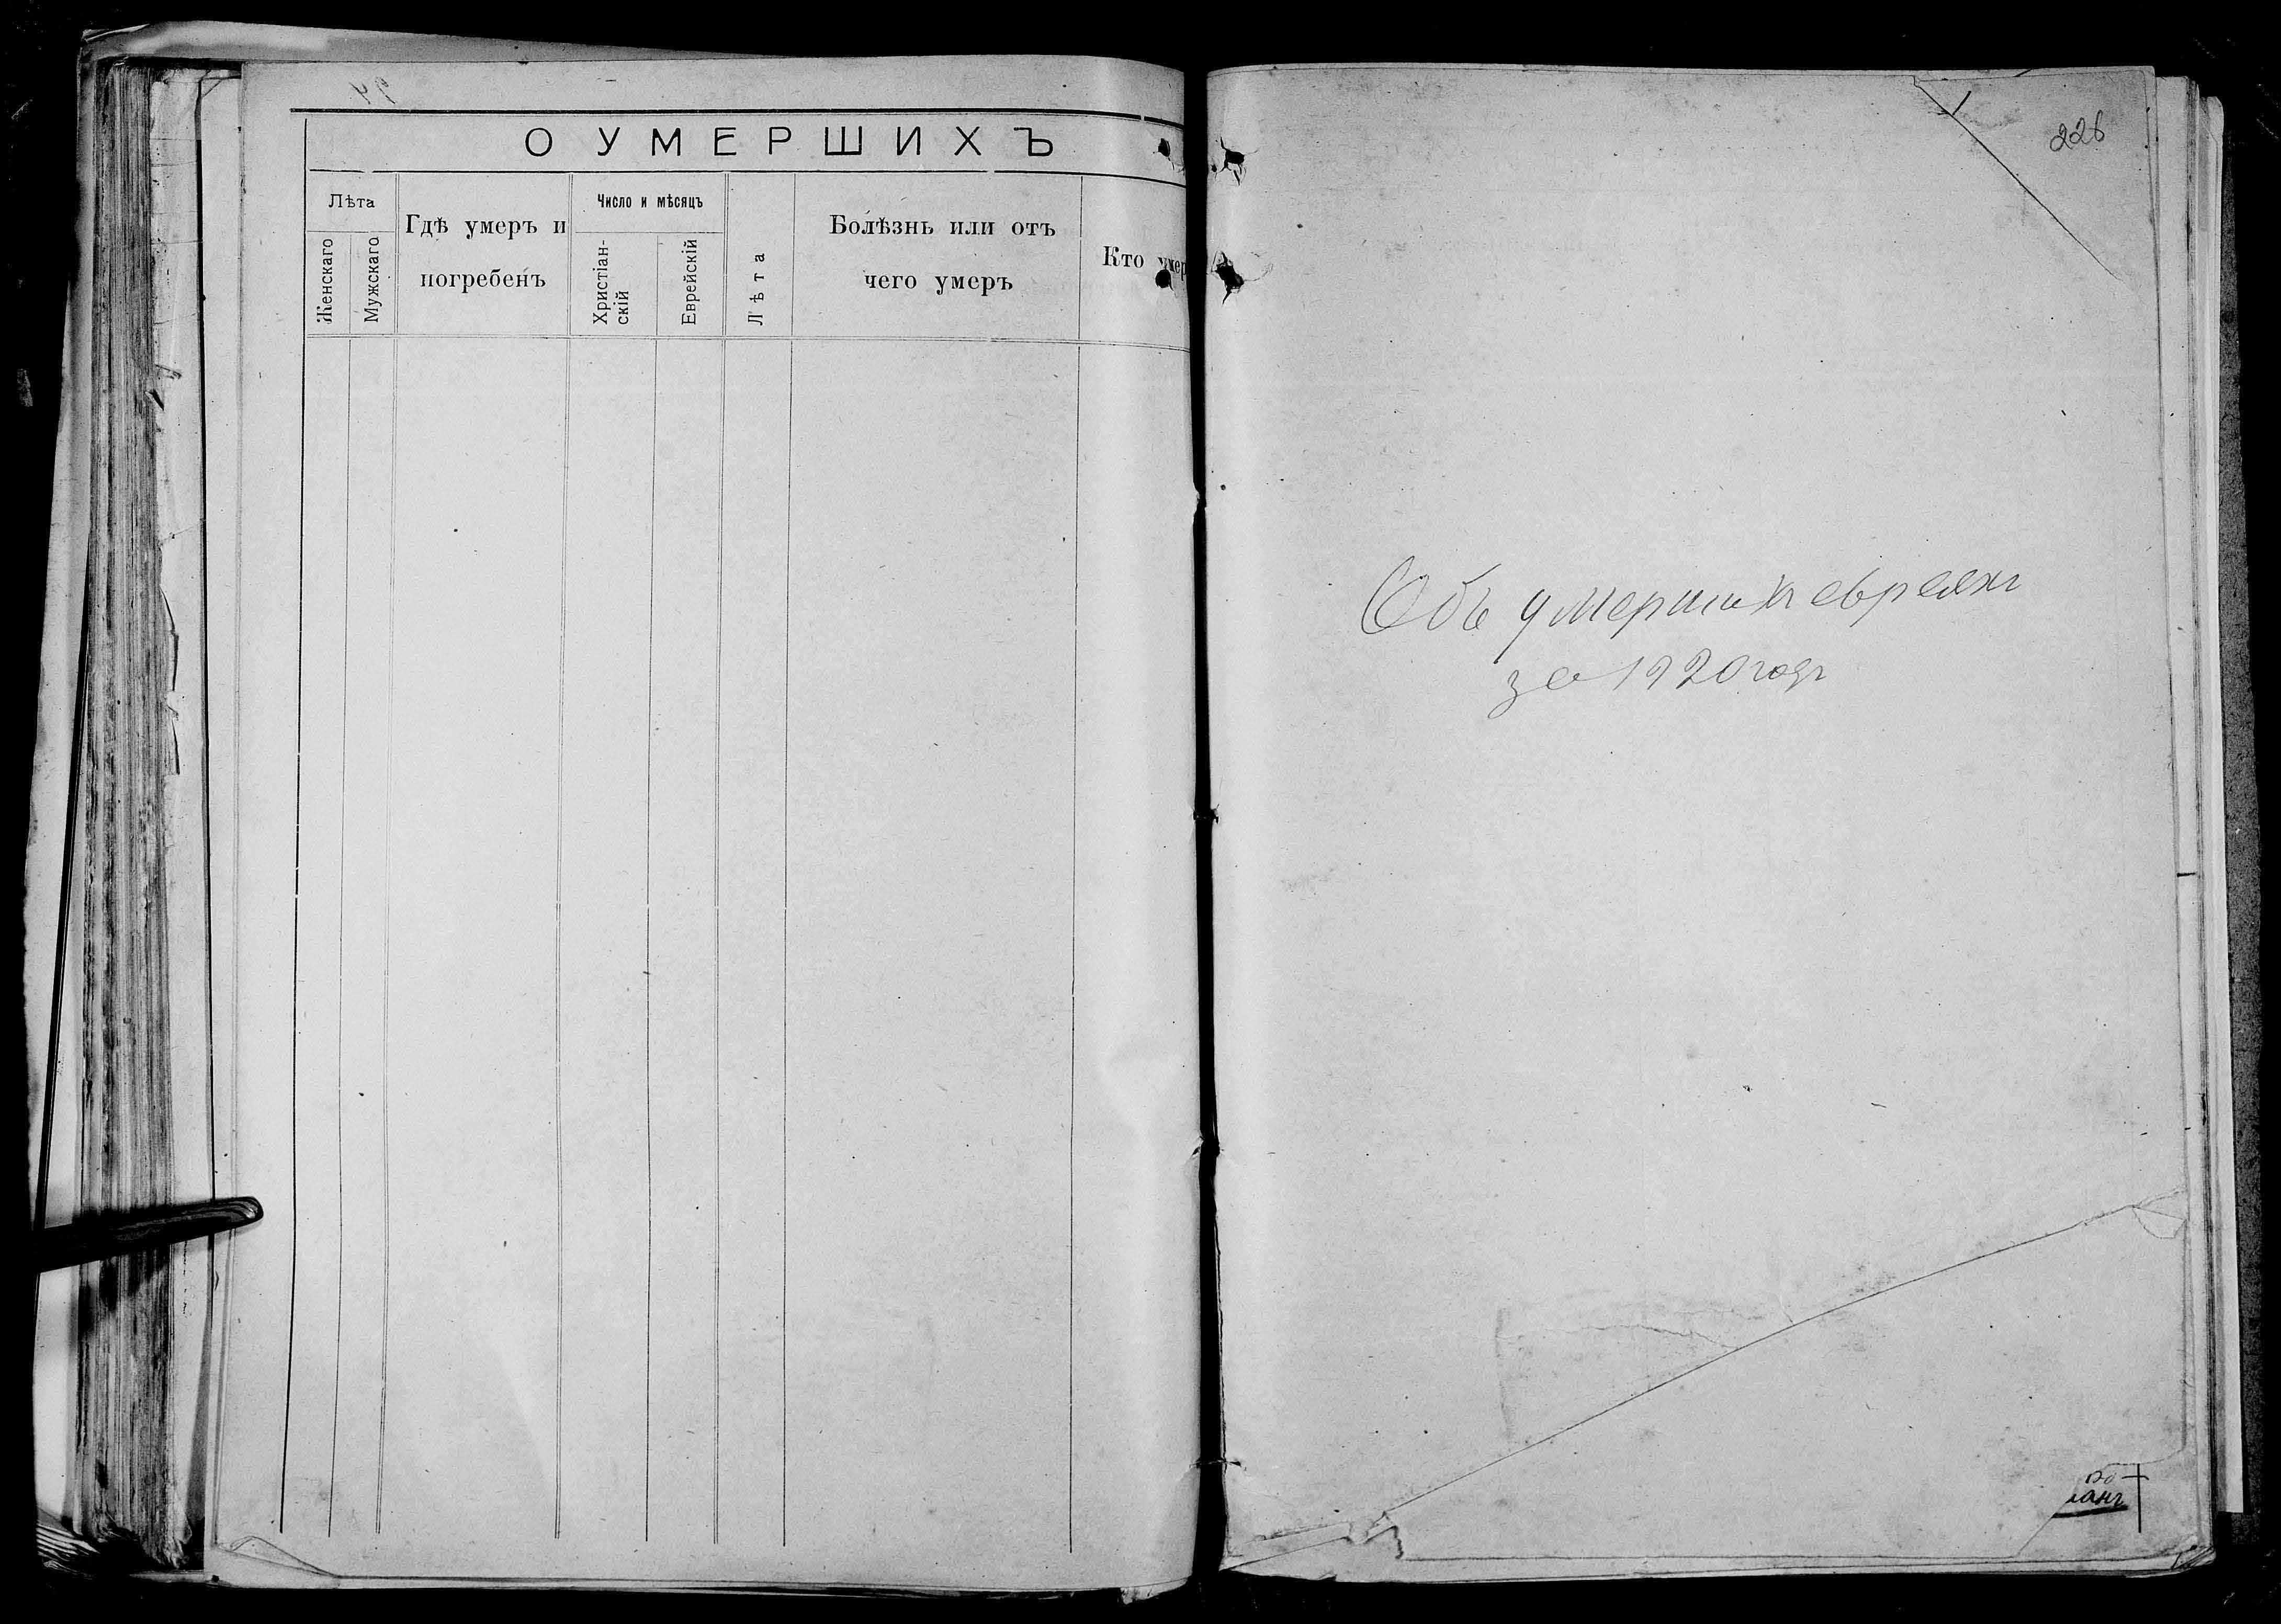 О УМЕРШИХЪ
Лѣта
Женскаго
Мужскаго
Гдѣ умеръ и
погребенъ
Число и мѣсяцъ
Христіан-
скій
Еврейскій
Лѣта
Болѣзнь или отъ
чего умеръ
Кто умер
226
Объ умершихъ евреяхъ
за 1920 годъ